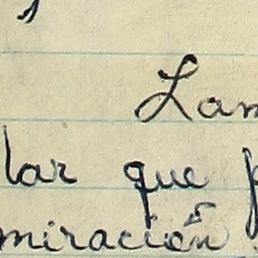 Lam
lar que p
miración